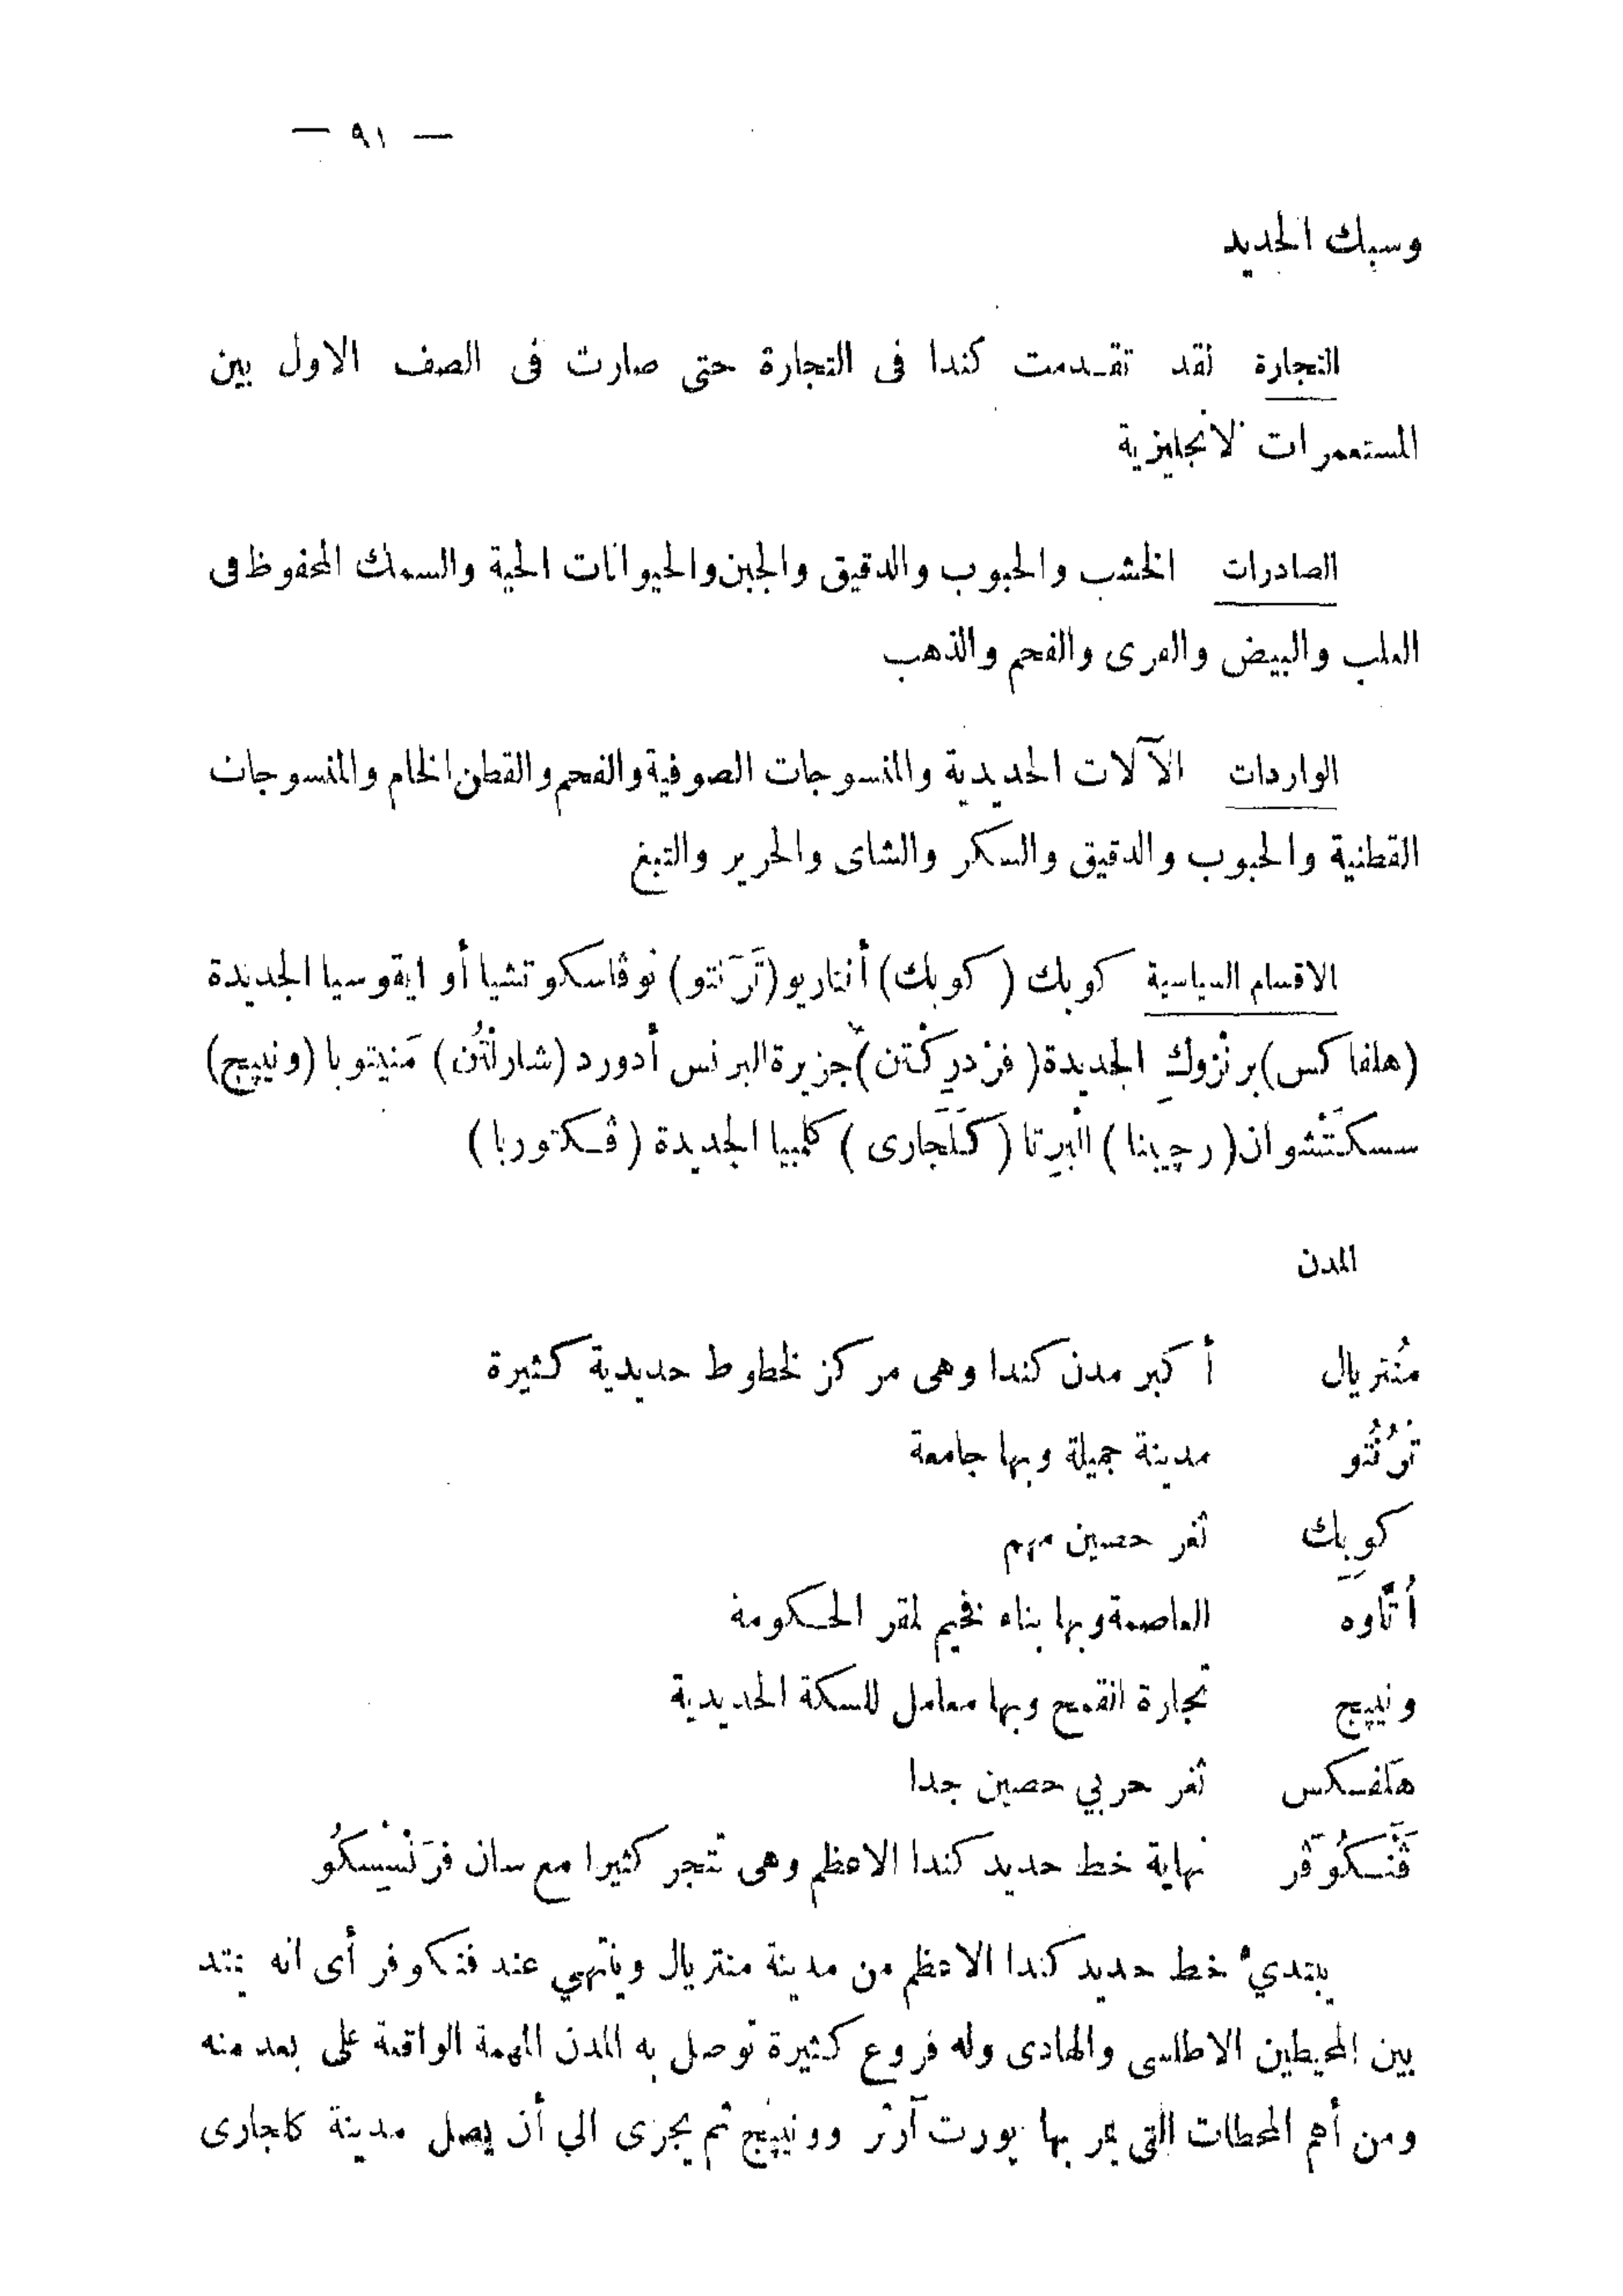 — ٩١ —
وسبك الحديد
التجارة لقد تقدمت كندا فى التجارة حتى صارت فى الصف الاول بين
المستعمرات الانجليزية
الصادرات الخشب والحبوب والدقيق والجبن والحيوانات الحية والسمك المحفوظ فى
العلب والبيض والفرى والفحم والذهب
الواردات الآلات الحديدية والمنسوجات الصوفية والفحم والقطن الخام والمنسوجات
القطنية والحبوب والدقيق والسكر والشاى والحرير والتبغ
الاقسام السياسية كوبك (كوبك) أنتاريو (تَرَنتو) نوڤاسكوتشيا أو ايقوسيا الجديدة
(هلفاكس) برنْزوكِ الجديدة (فرْدرِكْتن) جزيرة البرنس أدورد (شارلْتُن) مَنيتوبا (ونيپج)
سسكَتْشوان (رچينا) البرِتا (كَلَجارى) كلمبيا الجديدة (ڤكتوريا)
المدن
مُنتريال أكبر مدن كندا وهى مركز لخطوط حديدية كثيرة
تُرُنْتو مدينة جميلة وبها جامعة
كوِبِك ثغر حصين مهم
أُتَّاوه العاصمة وبها بناء فخيم لمقر الحكومة
ونيپج تجارة القمح وبها معامل للسكة الحديدية
هَلفَكس ثغر حربي حصين جدا
ڤَنْسكُوڤَر نهاية خط حديد كندا الاعظم وهى تتجر كثيرا مع سان فرَنْسِيسكُو
يبتدئ خط حديد كندا الاعظم من مدينة منتريال وينتهي عند فنكوفر أى انه يمتد
بين المحيطين الاطلسى والهادى وله فروع كثيرة توصل به المدن المهمة الواقعة على بعد منه
ومن أهم المحطات التى يمر بها پورت آرثر وونيپج ثم يجرى الي أن يصل مدينة كلجارى